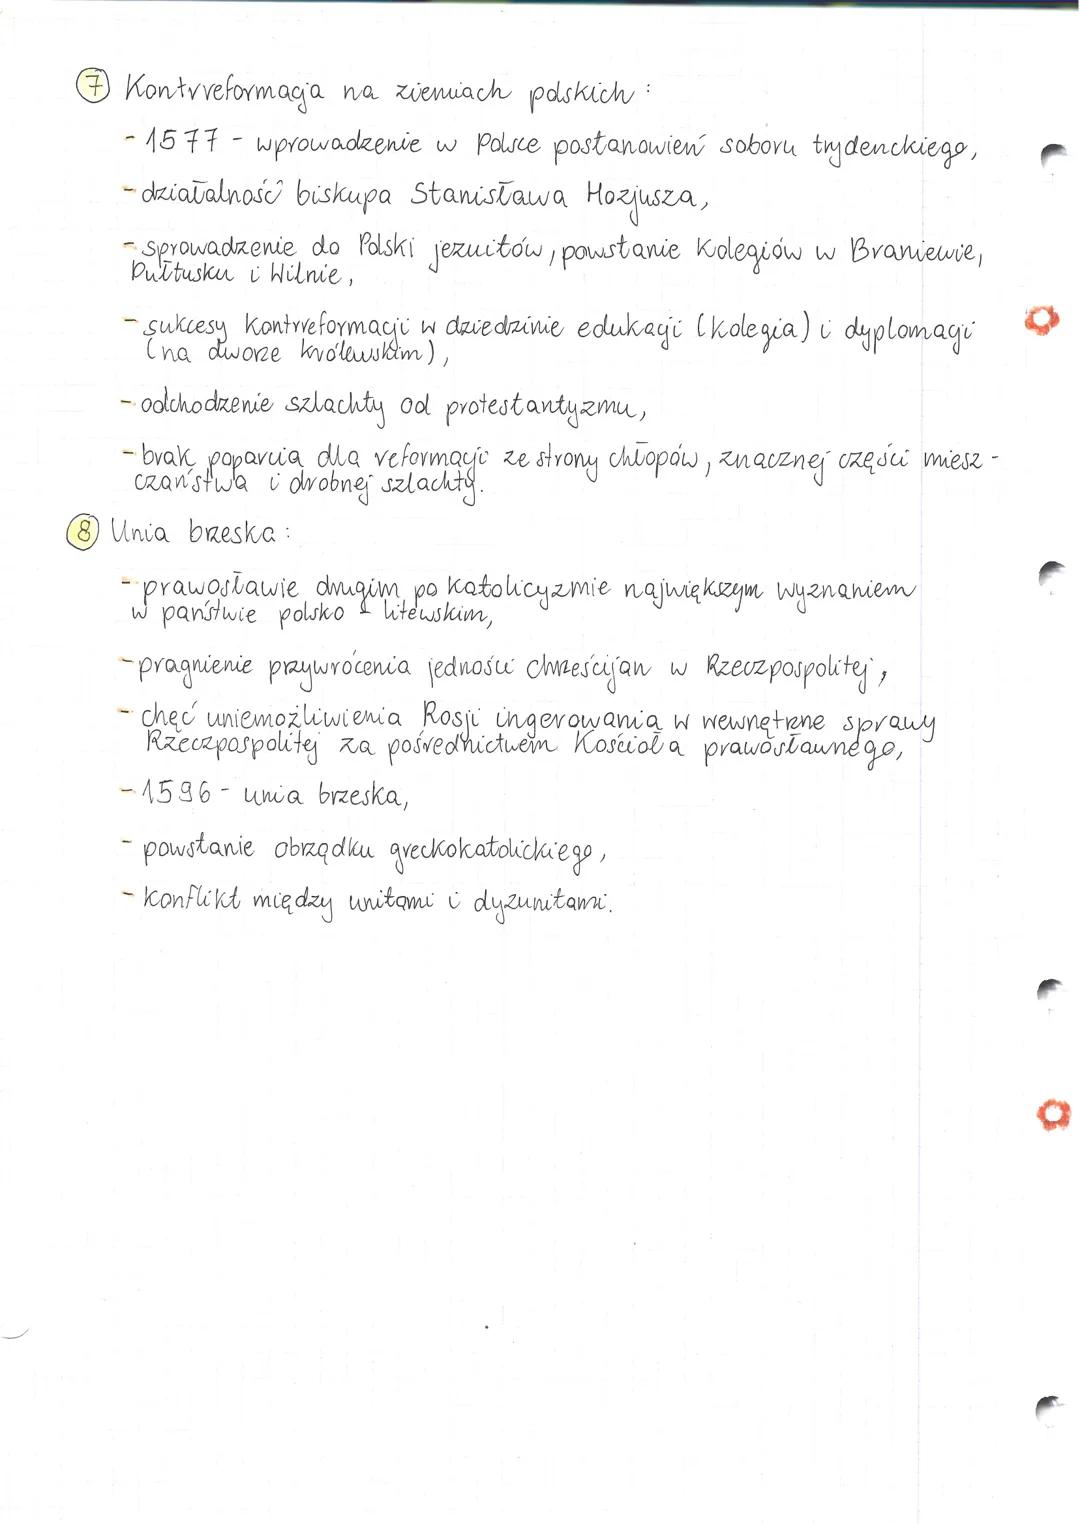 7 Kontrreformacja na ziemiach polskich:
- 1577 - wprowadzenie w Polsce postanowień soboru trydenckiego,
- działalność biskupa Stanisława Hozjusza,
- sprowadzenie do Polski jezuitów, powstanie kolegiów w Braniewie,
Pułtusku i Wilnie,
- sukcesy kontrreformacji w dziedzinie edukacji (kolegia) i dyplomacji
(na dworze królewskim),
- odchodzenie szlachty od protestantyzmu,
- brak poparcia dla reformacji ze strony chłopów, znacznej części miesz-
czaństwa i drobnej szlachty.
8 Unia brzeska:
- prawosławie drugim po katolicyzmie największym wyznaniem
w państwie polsko - litewskim,
- pragnienie przywrócenia jedności chrześcijan w Rzeczpospolitej,
- chęć uniemożliwienia Rosji ingerowania w wewnętrzne sprawy
Rzeczpospolitej za pośrednictwem Kościoła prawosławnego,
- 1596 - unia brzeska,
- powstanie obrządku greckokatolickiego,
- konflikt między unitami i dyzunitami.